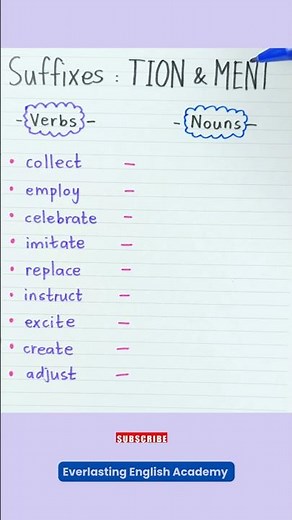 Suffixes : TION & MENT
- Verbs - - Nouns -
• collect –
• employ –
• celebrate –
• imitate –
• replace –
• instruct –
• excite –
• create –
• adjust –
SUBSCRIBE
Everlasting English Academy